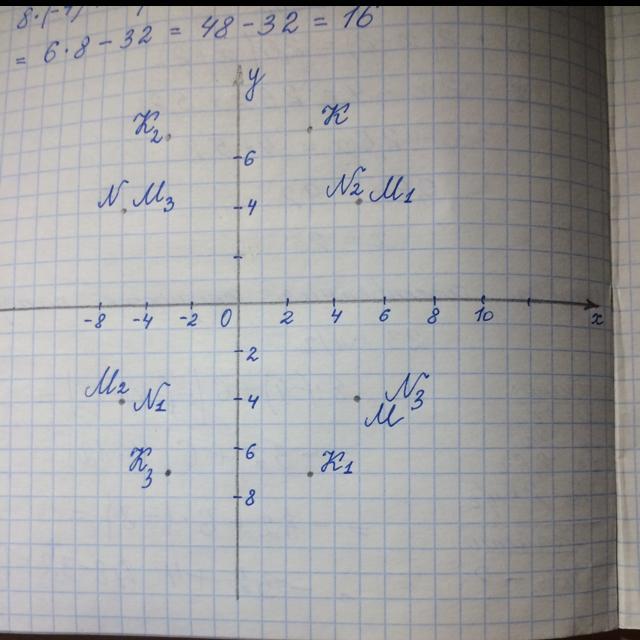 8·(-4)
= 6·8 - 32 = 48 - 32 = 16
y
K₂ K
6
N M₃ 4 N₂ M₁
-8 -4 -2 0 2 4 6 8 10 x
2
M₂ N₁ 4 N₃
M
6
K₃ K₁
8